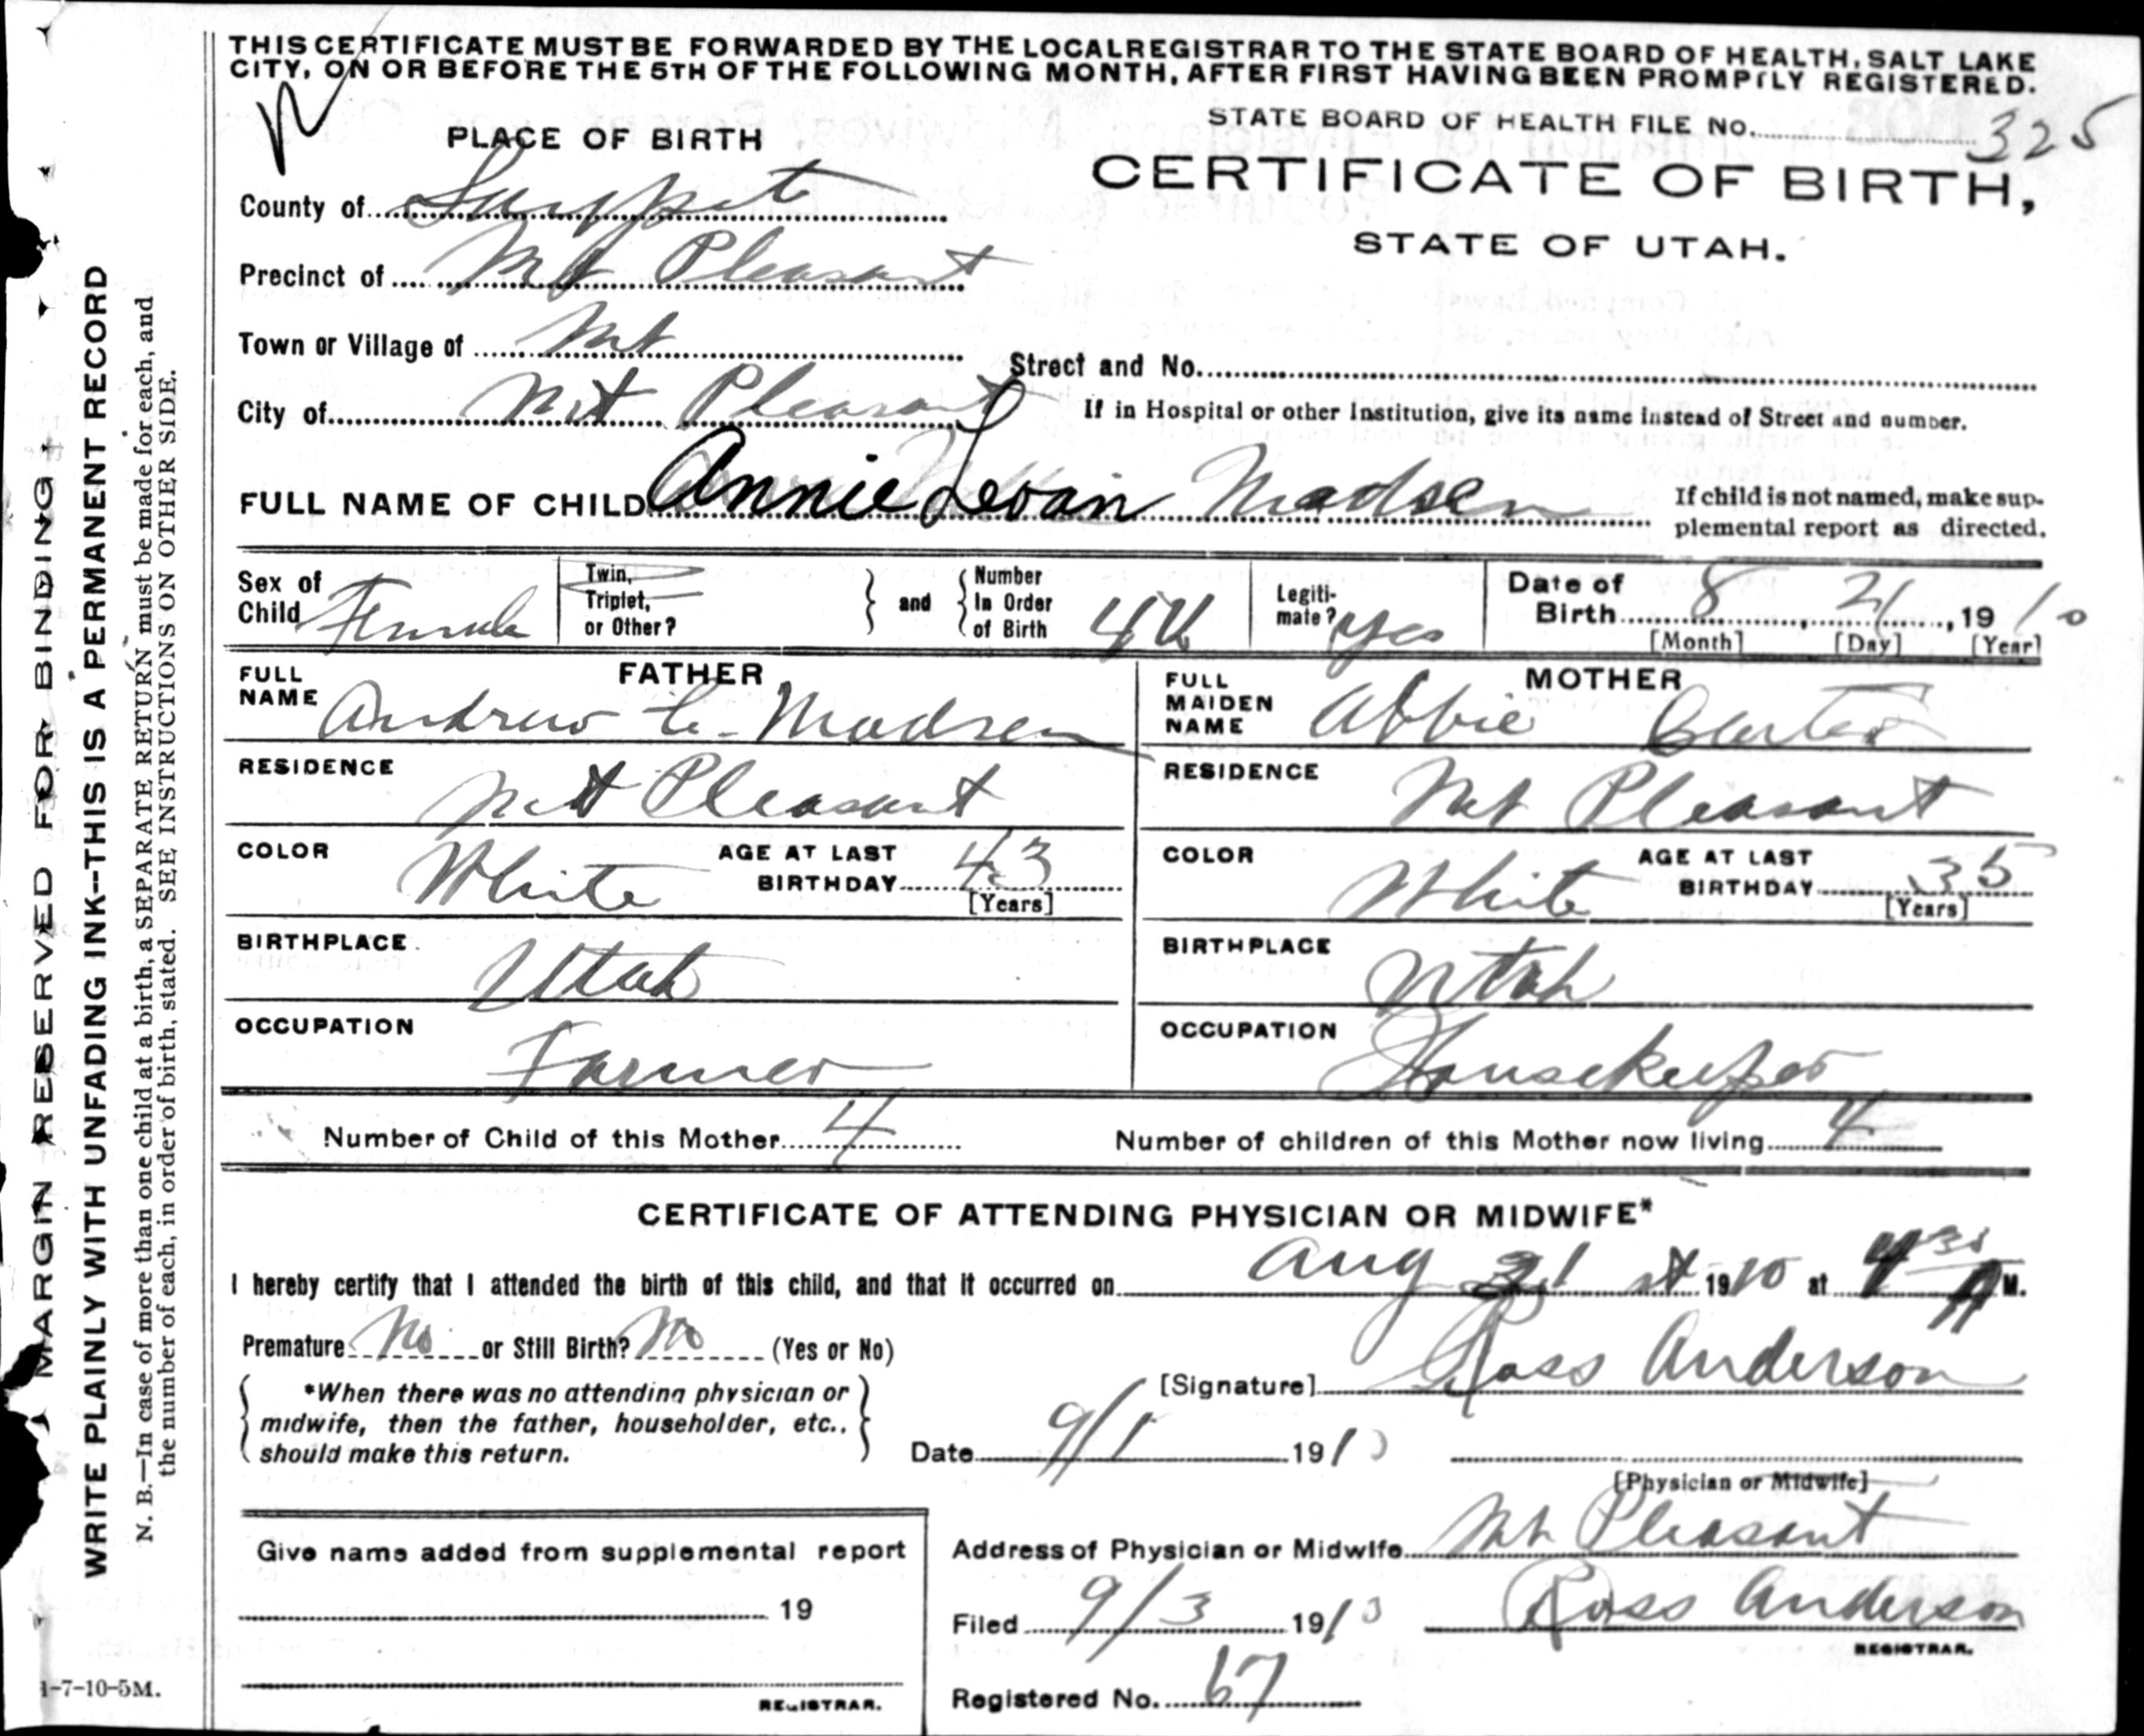 THIS CERTIFICATE MUST BE FORWARDED BY THE LOCAL REGISTRAR TO THE STATE BOARD OF HEALTH, SALT LAKE
CITY, ON OR BEFORE THE 5TH OF THE FOLLOWING MONTH, AFTER FIRST HAVING BEEN PROMPTLY REGISTERED.
STATE BOARD OF HEALTH FILE No. 325
PLACE OF BIRTH
CERTIFICATE OF BIRTH,
STATE OF UTAH.
County of Sanpete
Precinct of Mt Pleasant
Town or Village of Mt
Street and No.
City of Mt Pleasant
If in Hospital or other Institution, give its name instead of Street and number.
FULL NAME OF CHILD Annie Levan Madsen
If child is not named, make sup-
plemental report as directed.
Sex of Child Female
Twin, Triplet, or Other?
and
Number In Order of Birth 4th
Legiti-mate? Yes
Date of Birth 8 21, 1910
[Month] [Day] [Year]
FATHER
FULL NAME Andrew C. Madsen
RESIDENCE Mt Pleasant
COLOR White AGE AT LAST BIRTHDAY 43 [Years]
BIRTHPLACE Utah
OCCUPATION Farmer
MOTHER
FULL MAIDEN NAME Abbie Carter
RESIDENCE Mt Pleasant
COLOR White AGE AT LAST BIRTHDAY 35 [Years]
BIRTHPLACE Utah
OCCUPATION Housekeeper
Number of Child of this Mother 4
Number of children of this Mother now living 4
CERTIFICATE OF ATTENDING PHYSICIAN OR MIDWIFE*
I hereby certify that I attended the birth of this child, and that it occurred on Aug 21 st 1910 at 4 30 A M.
Premature No or Still Birth? No (Yes or No)
*When there was no attending physician or
midwife, then the father, householder, etc.,
should make this return.
[Signature] Ross Anderson
Date 9/1 1910
[Physician or Midwife]
Give name added from supplemental report
19
REGISTRAR.
Address of Physician or Midwife Mt Pleasant
Filed 9/3 1910 Ross Anderson
REGISTRAR.
Registered No. 67
MARGIN RESERVED FOR BINDING
WRITE PLAINLY WITH UNFADING INK--THIS IS A PERMANENT RECORD
N. B.—In case of more than one child at a birth, a SEPARATE RETURN must be made for each, and
the number of each, in order of birth, stated. SEE INSTRUCTIONS ON OTHER SIDE.
1-7-10-5M.